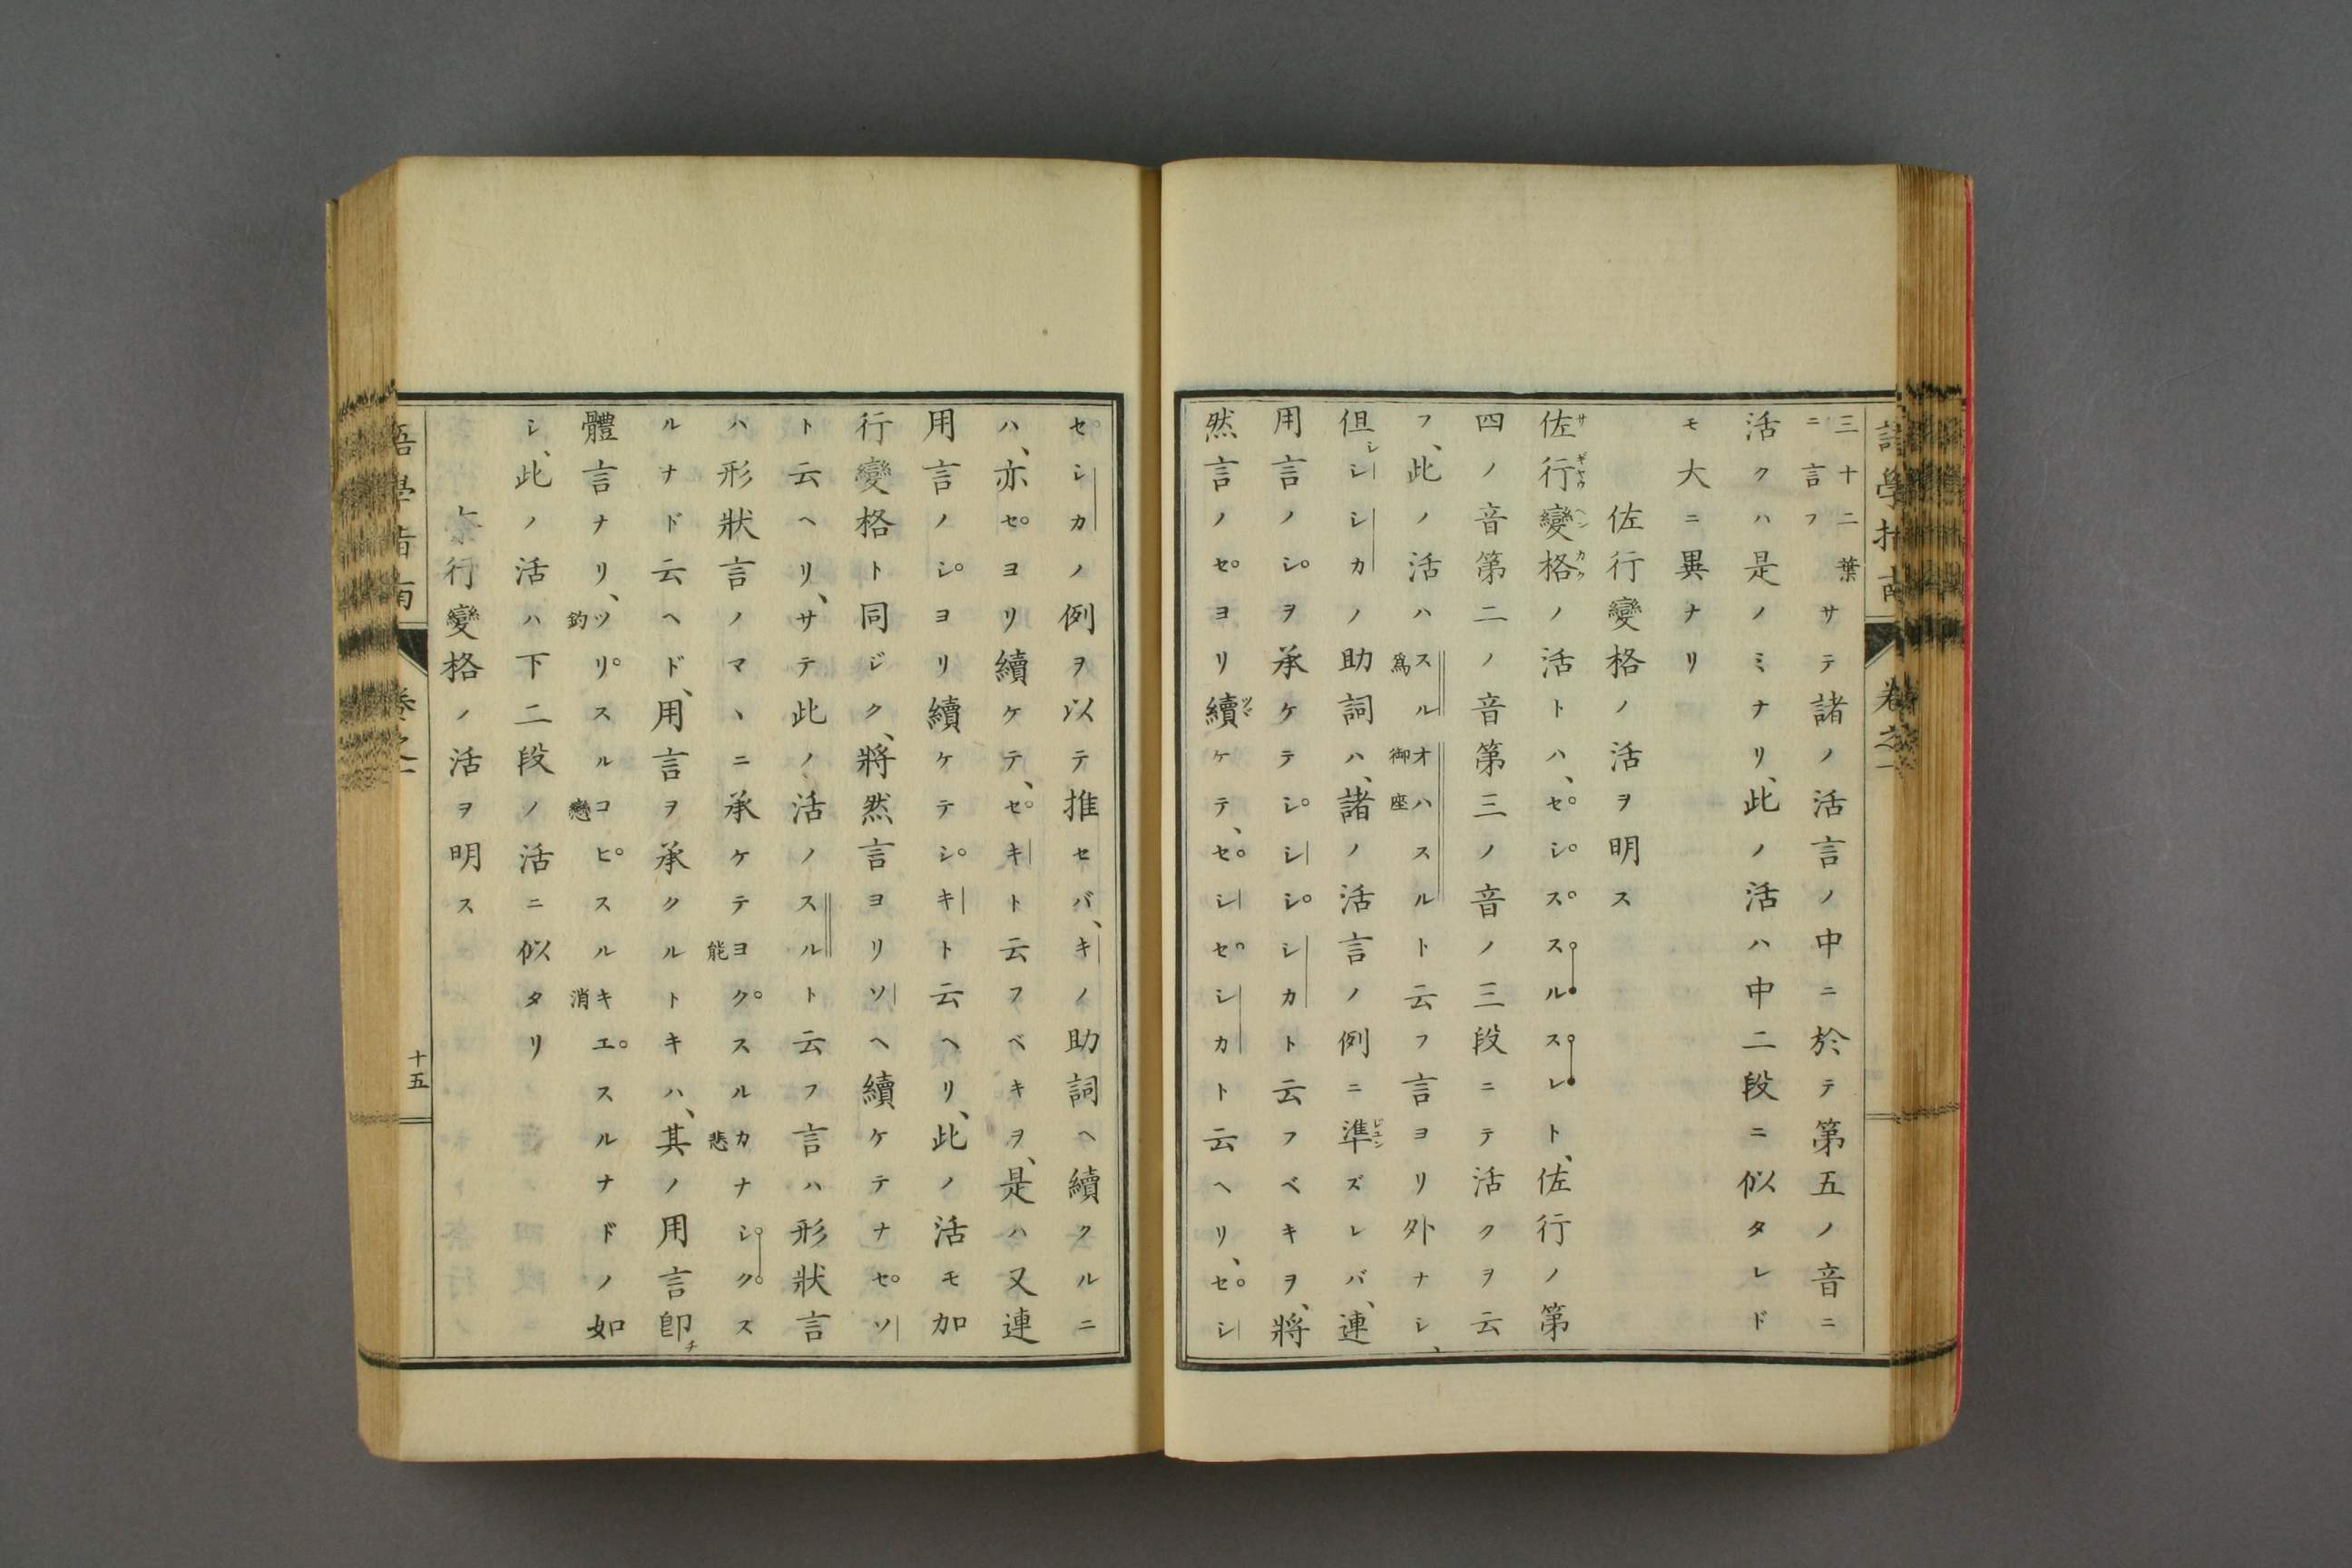 三十二葉ニ言フサテ諸ノ活言ノ中ニ於テ第五ノ音ニ
活クハ是ノミナリ、此ノ活ハ中二段ニ似タレド
モ大ニ異ナリ
佐行變格ノ活ヲ明ス
佐行變格ノ活トハ、セシススルスレト、佐行ノ第
四ノ音第二ノ音第三ノ音ノ三段ニテ活クヲ云
フ、此ノ活ハスル爲オハスル御座ト云フ言ヨリ外ナシ、
但シシシカノ助詞ハ、諸ノ活言ノ例ニ準ズレバ、連
用言ノシヲ承ケテシシシシカト云フベキヲ、將
然言ノセヨリ續ケテ、セシセシカト云ヘリ、セシ
セシカノ例ヲ以テ推セバ、キノ助詞ヘ續クルニ
ハ、亦セヨリ續ケテ、セキト云フベキヲ、是ハ又連
用言ノシヨリ續ケテシキト云ヘリ、此ノ活モ加
行變格ト同ジク、將然言ヨリソヘ續ケテナセソ
ト云ヘリ、サテ此ノ活ノスルト云フ言ハ形狀言
ハ形狀言ノマヽニ承ケテヨク能スルカナシク悲ス
ルナド云ヘド、用言ヲ承クルトキハ、其ノ用言卽チ
體言ナリ、ツリ釣スルコヒ戀スルキエ消スルナドノ如
シ、此ノ活ハ下二段ノ活ニ似タリ
奈行變格ノ活ヲ明ス
語學指南
卷之一
十五